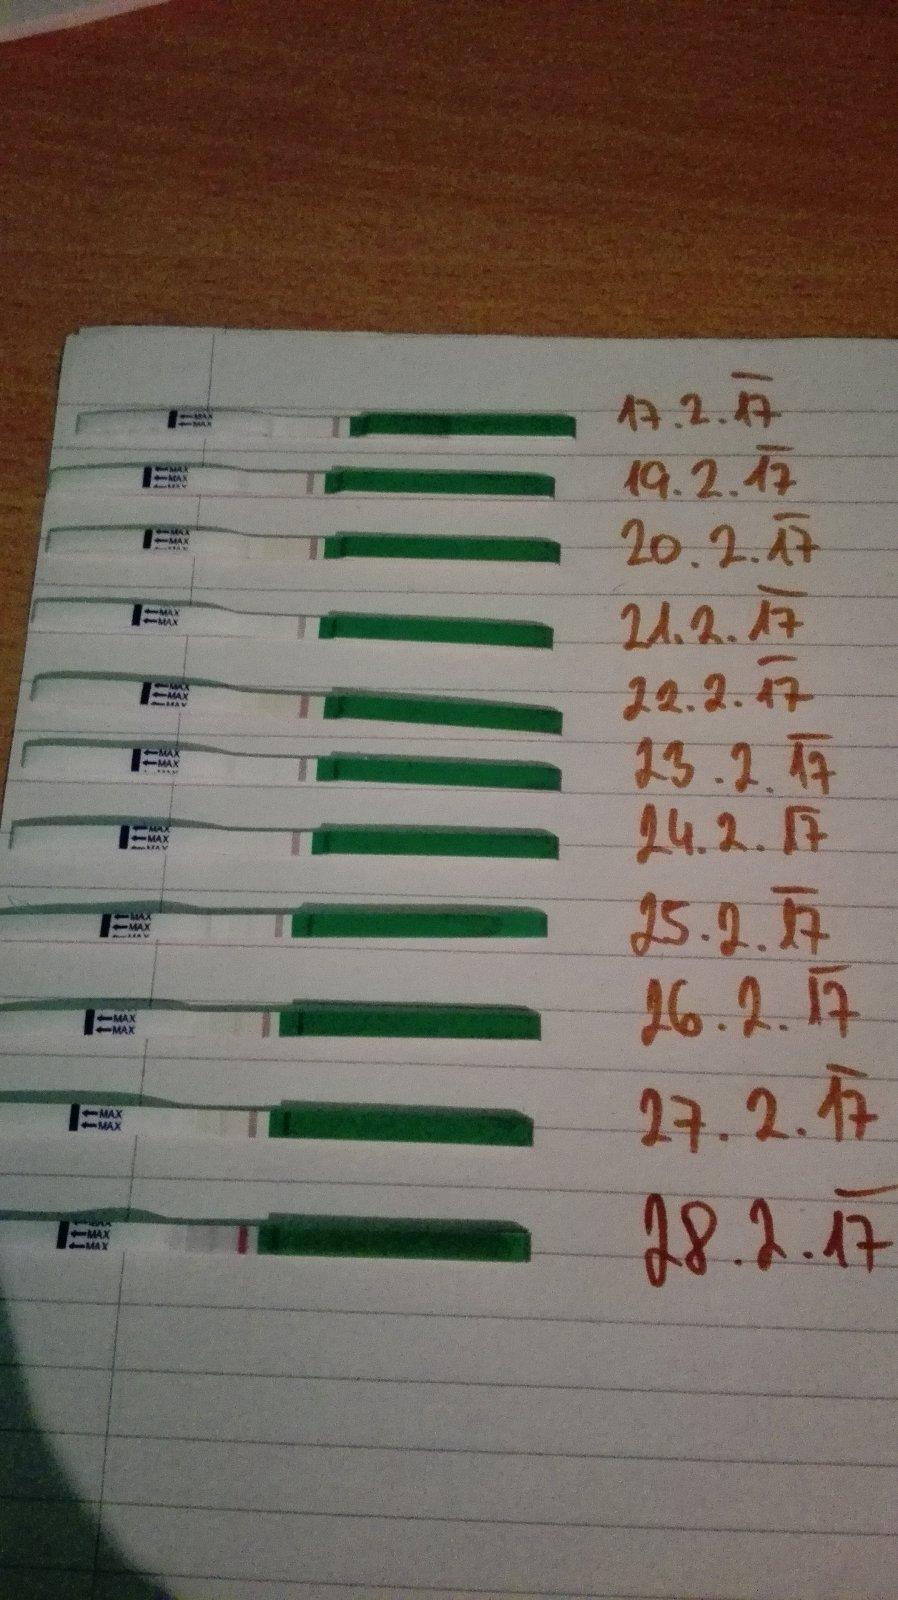 ←MAX
←MAX
17.2.17
MAX
←MAX
MAX
19.2.17
←MAX
←MAX
20.2.17
←MAX
←MAX
21.2.17
←MAX
←MAX
MAX
22.2.17
←MAX
←MAX
MAX
23.2.17
MAX
←MAX
MAX
24.2.17
←MAX
←MAX
MAX
25.2.17
←MAX
←MAX
26.2.17
←MAX
←MAX
27.2.17
MAX
←MAX
←MAX
28.2.17